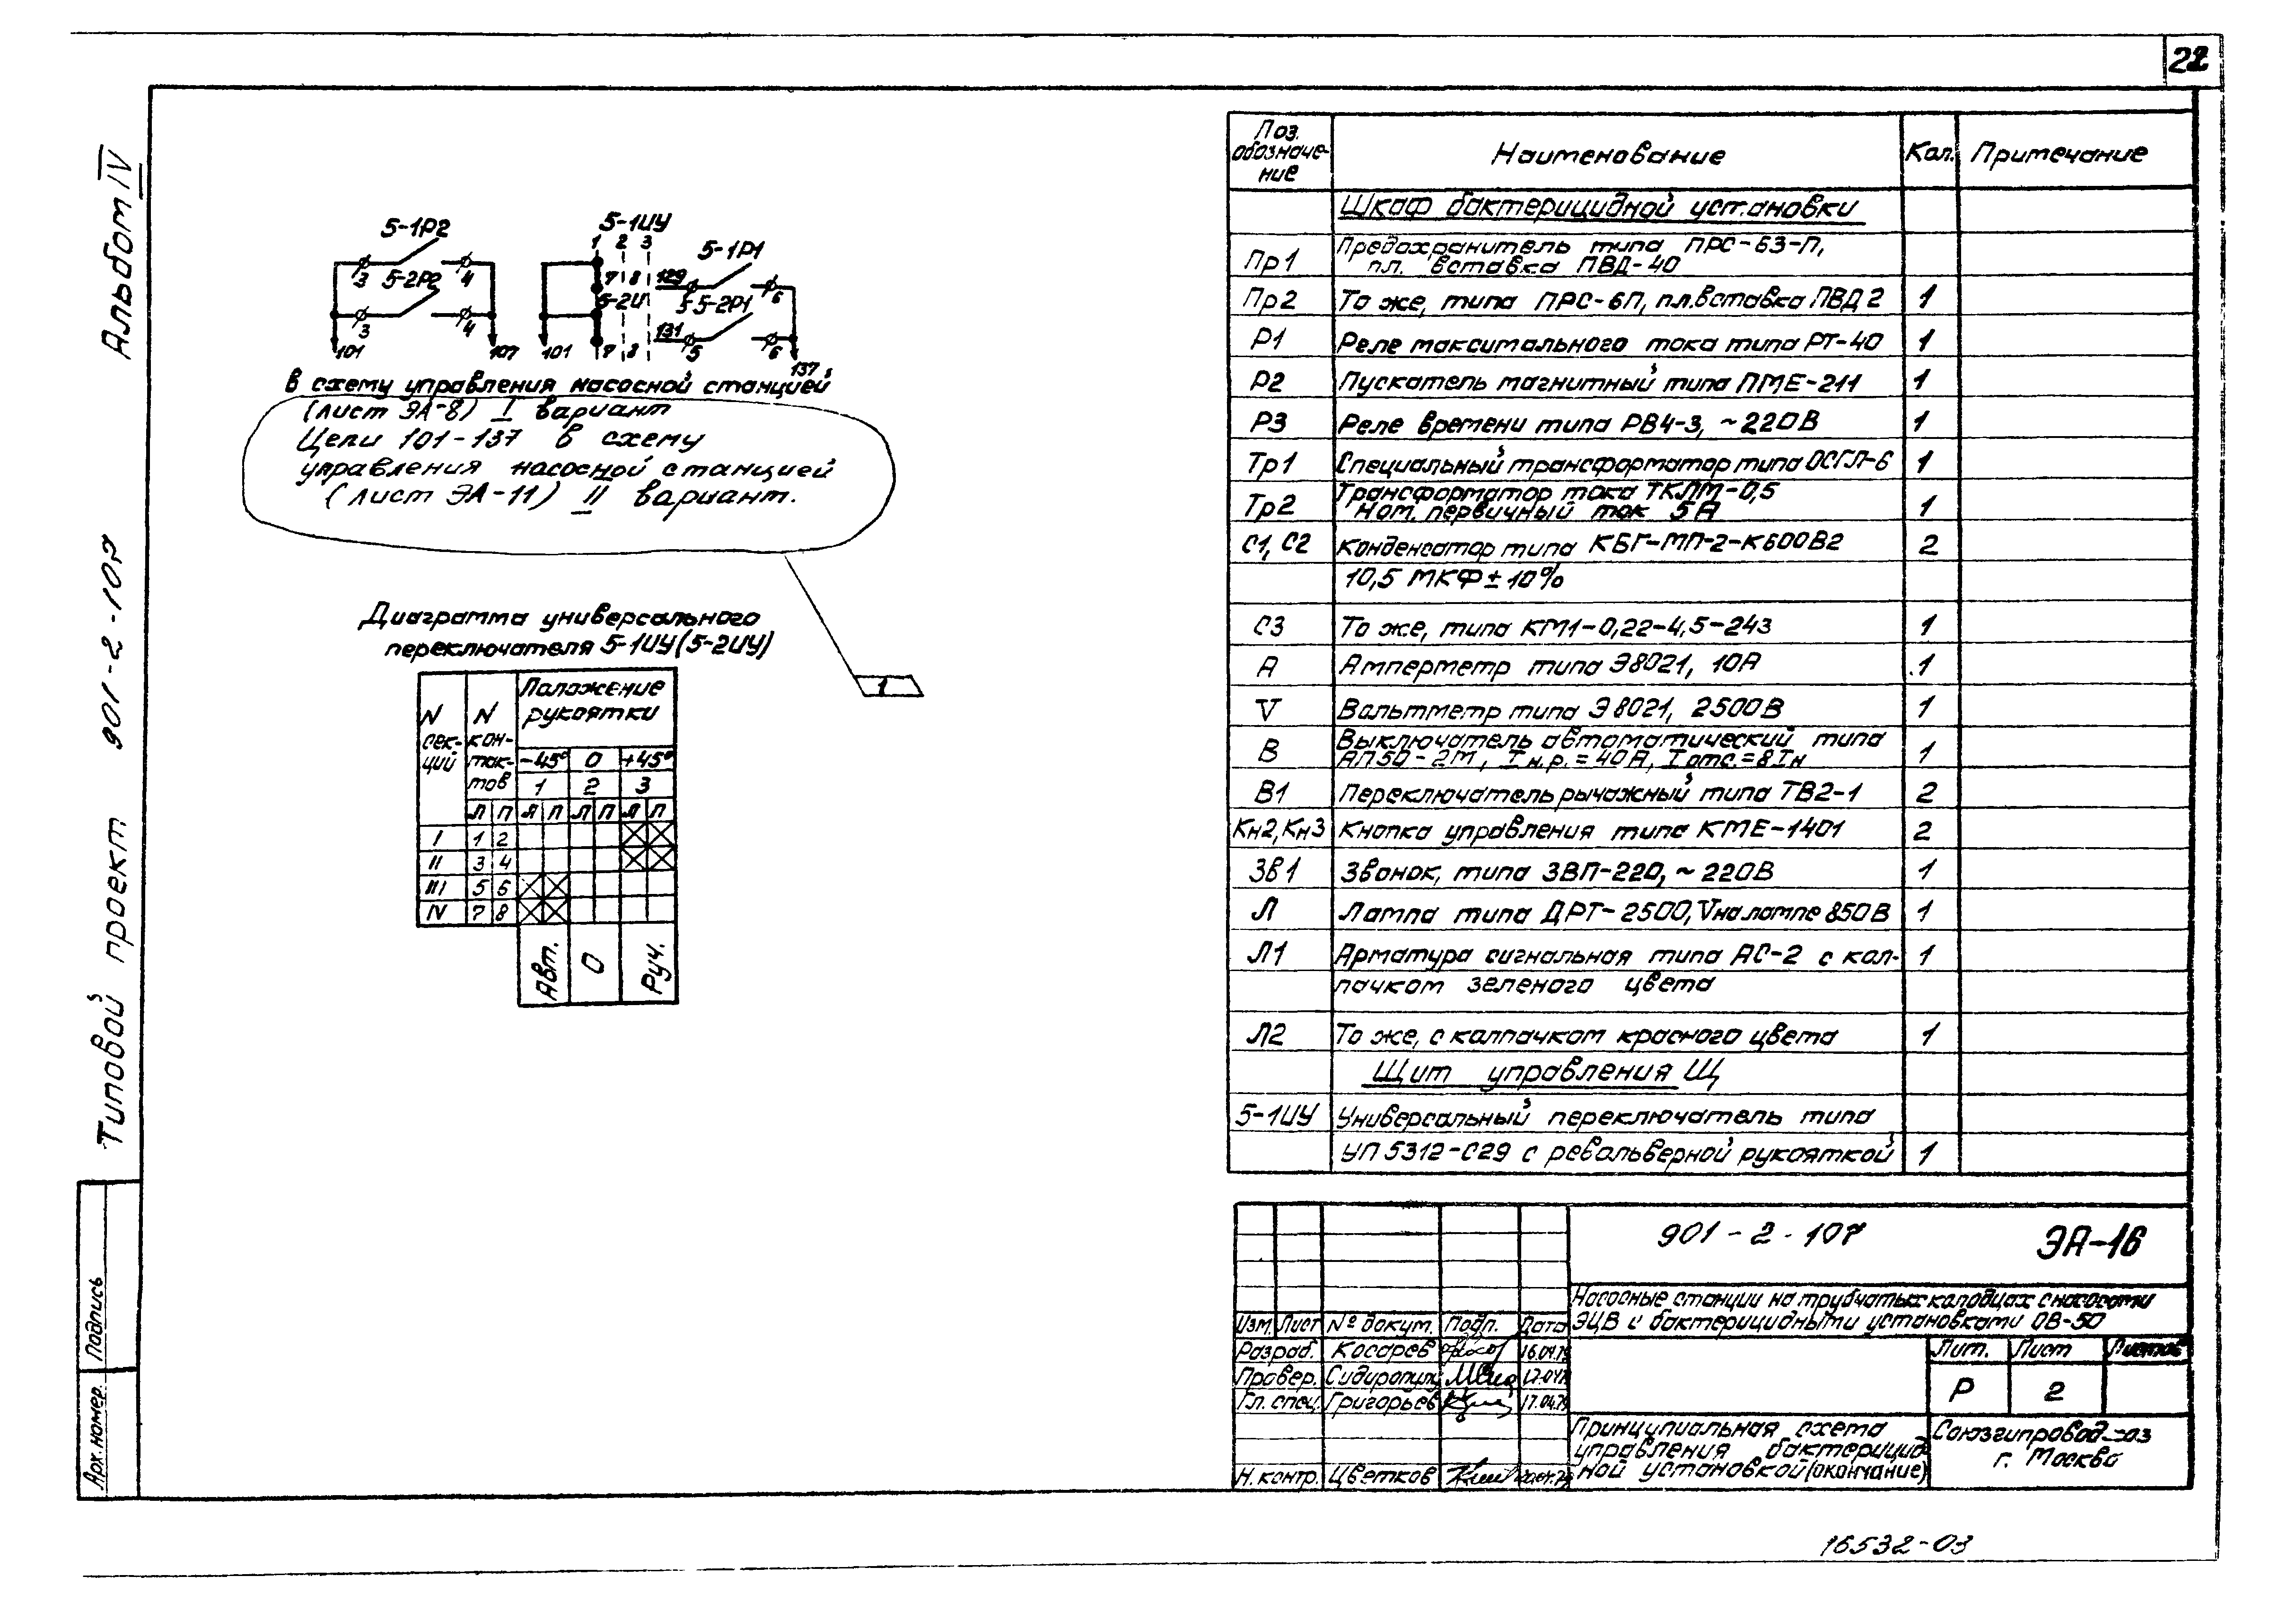 22
Альбом IV
Типовой проект 901-2-107
Подпись
Арх. номер.
5-1Р2
3
4
5-2Р2
3
4
101
107
5-1ИУ
1 2 3
7 8
5-2И
7 8
101
5-1Р1
129
5
6
5-2Р1
131
5
6
137
В схему управления насосной станцией
(лист ЭА-8) I вариант
Цепи 101-137 в схему
управления насосной станцией
(лист ЭА-11) II вариант.
1
Диаграмма универсального
переключателя 5-1ИУ(5-2ИУ)
N секций
N контактов
Положение рукоятки
-45° 0 +45°
1 2 3
Л П Л П Л П Л П
I 1 2
II 3 4
III 5 6
IV 7 8
Авт. 0 Руч.
Поз. обозначение Наименование Кол. Примечание
Шкаф бактерицидной установки
Пр1 Предохранитель типа ПРС-63-П,
пл. вставка ПВД-40
Пр2 То же, типа ПРС-6П, пл.вставка ПВД2 1
Р1 Реле максимального тока типа РТ-40 1
Р2 Пускатель магнитный типа ПМЕ-211 1
Р3 Реле времени типа РВ4-3, ~220В 1
Тр1 Специальный трансформатор типа ОСГЛ-6 1
Тр2 Трансформатор тока ТКЛМ-0,5
Ном. первичный ток 5А 1
С1, С2 Конденсатор типа КБГ-МП-2-К600В2 2
10,5 МКФ±10%
С3 То же, типа КМ1-0,22-4,5-243 1
А Амперметр типа Э8021, 10А 1
V Вольтметр типа Э8021, 2500В 1
В Выключатель автоматический типа
АП50-2М, Iн.р.=40А, Iотс.=8Iн 1
В1 Переключатель рычажный типа ТВ2-1 2
Кн2, Кн3 Кнопка управления типа КМЕ-1401 2
Зв1 Звонок, типа ЗВП-220, ~220В 1
Л Лампа типа ДРТ-2500, Vна лампе 850В 1
Л1 Арматура сигнальная типа АС-2 с кол- 1
пачком зеленого цвета
Л2 То же, с колпачком красного цвета 1
Щит управления Щ
5-1ИУ Универсальный переключатель типа
УП5312-С29 с револьверной рукояткой 1
901-2-107 ЭА-16
Насосные станции на трубчатых колодцах с насосами
ЭЦВ и бактерицидными установками ОВ-50
Изм. Лист № докум. Подп. Дата
Разраб. Косарев 16.04.79
Провер. Сидиропуло
Гл. спец. Григорьев 17.04.79
Н. контр. Цветков
Лит. Лист Листов
Р 2
Принципиальная схема
управления бактерицид-
ной установкой (окончание)
Союзгипроводхоз
г. Москва
16532-03